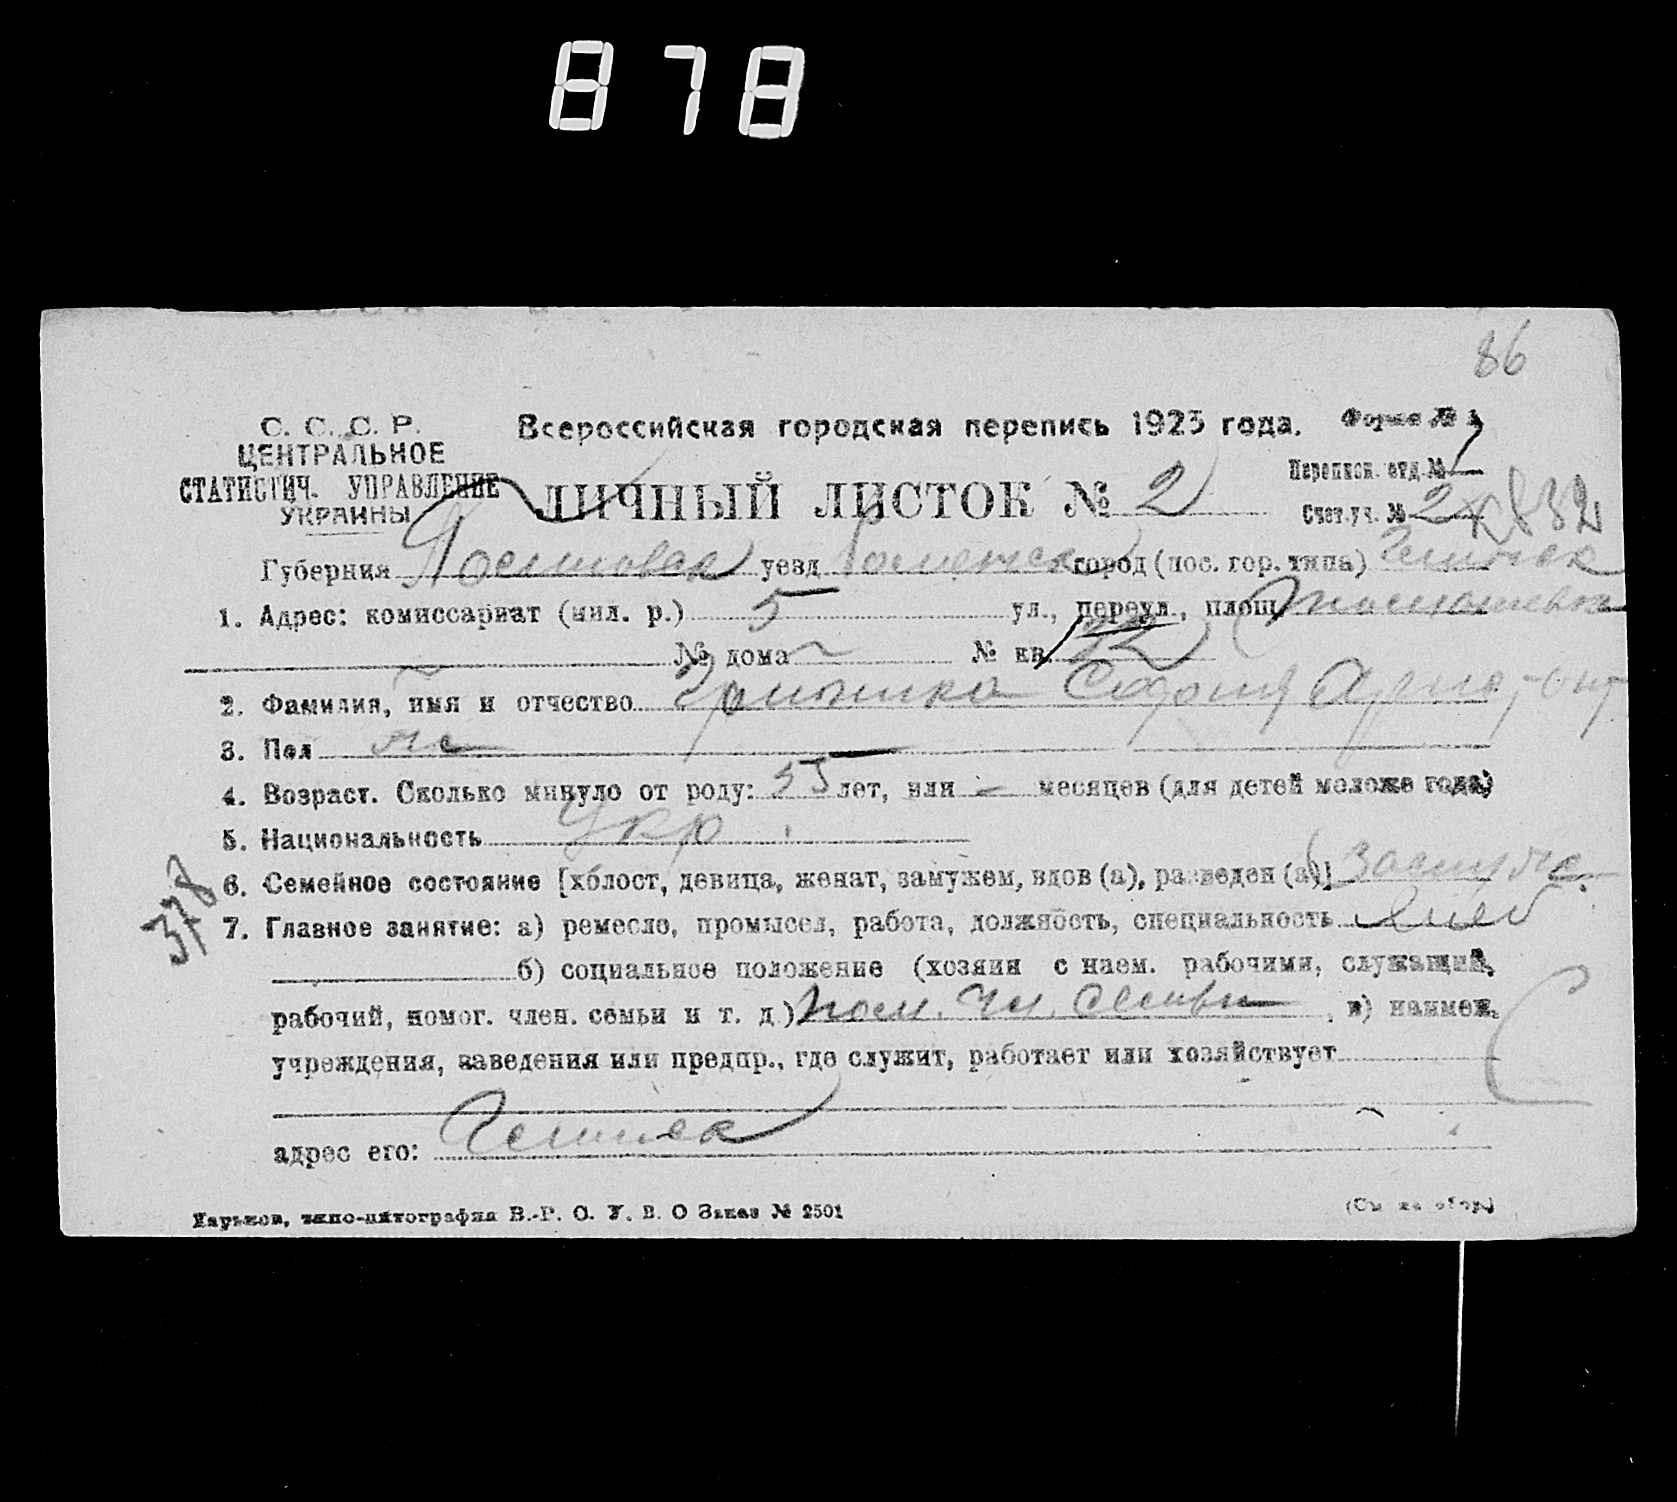 878
86
С. С. С. Р.
ЦЕНТРАЛЬНОЕ
СТАТИСТИЧ. УПРАВЛЕНИЕ
УКРАИНЫ
Всероссийская городская перепись 1923 года.
Форма №
Перепися. отд. № 1
ЛИЧНЫЙ ЛИСТОК № 2
Счет. уч. № 2
Губерния уезд город (пос. гор. типа)
1. Адрес: комиссариат (мил. р.) 5 ул., переул., площ.
№ дома № кв.
2. Фамилия, имя и отчество София
3. Пол ж
4. Возраст. Сколько минуло от роду: 55 лет, или – месяцев (для детей моложе года)
5. Национальность Укр.
6. Семейное состояние [холост, девица, женат, замужем, вдов (а), разведен (а)] замуж.
378
7. Главное занятие: а) ремесло, промысел, работа, должность, специальность
б) социальное положение (хозяин с наем. рабочими, служащий,
рабочий, помог. член. семьи и т. д.) пом. чл. семьи, в) наимен.
учреждения, заведения или предпр., где служит, работает или хозяйствует
адрес его:
Харьков, типо-литография В.-Р. О. У. В. О Заказ № 2501
(См. на обор.)